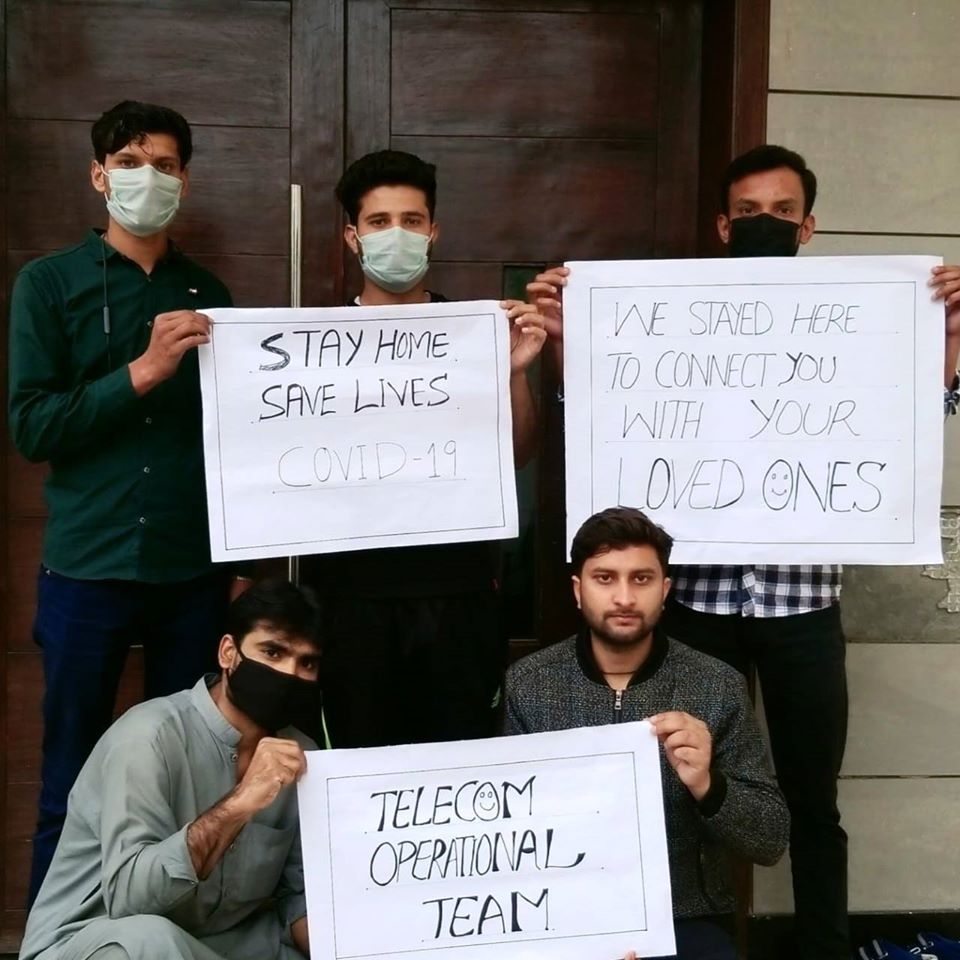 STAY HOME
SAVE LIVES
COVID-19
WE STAYED HERE
TO CONNECT YOU
WITH YOUR
LOVED ONES
TELECOM
OPERATIONAL
TEAM